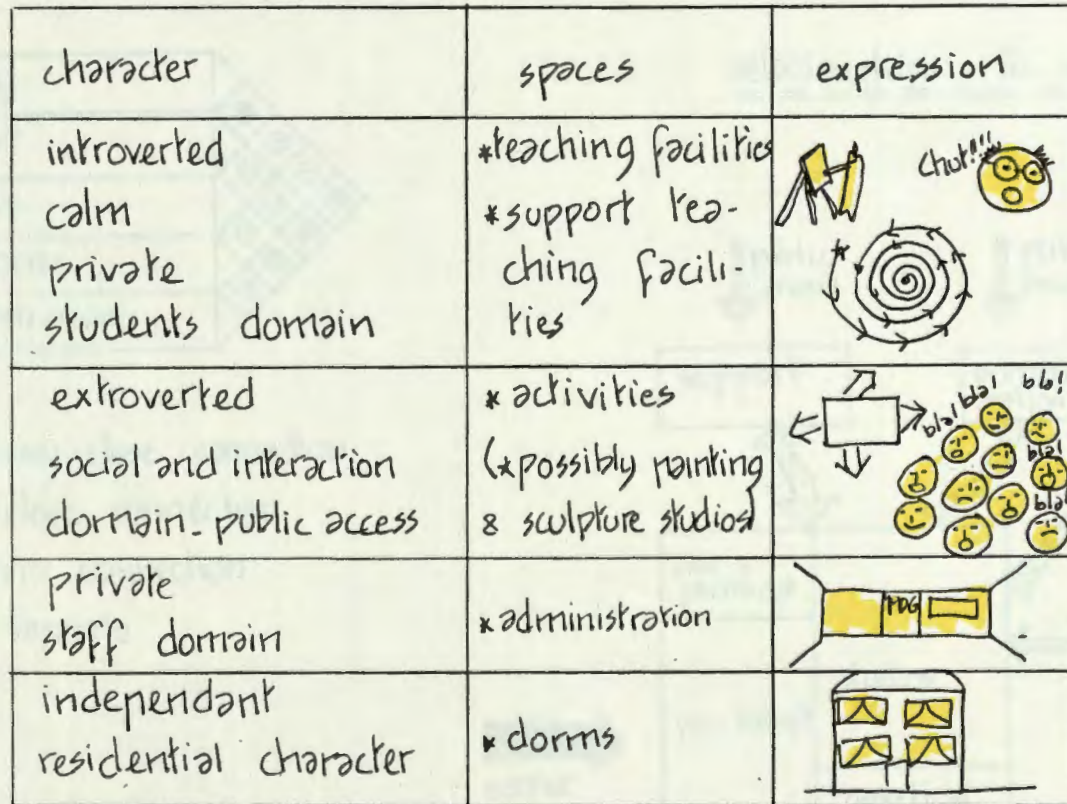 character
spaces
expression
introverted
calm
private
students domain
*teaching facilities
*support tea-
ching facili-
ties
chut!!!!
extroverted
social and interaction
domain-public access
* activities
(*possibly painting
& sculpture studios)
bla! bla! bla! bb!
bla!
bla!
private
staff domain
*administration
PDG
independant
residential character
* dorms